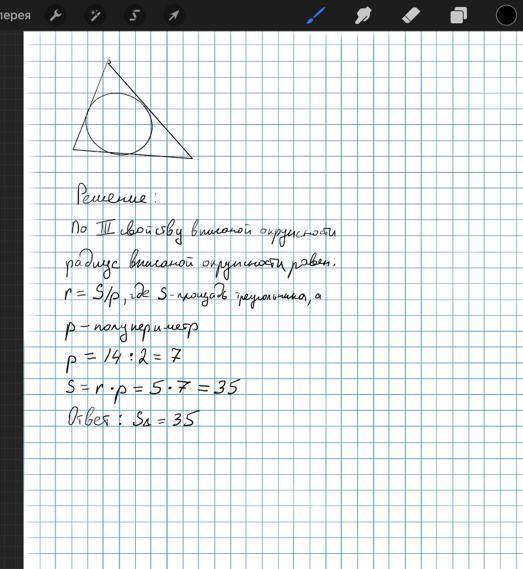 лерея
Решение:
По III свойству вписаной окружности
радиус вписаной окружности равен:
r = S/p, где S-площадь треугольника, а
p - полупериметр
p = 14 : 2 = 7
S = r · p = 5 · 7 = 35
Ответ: S△ = 35